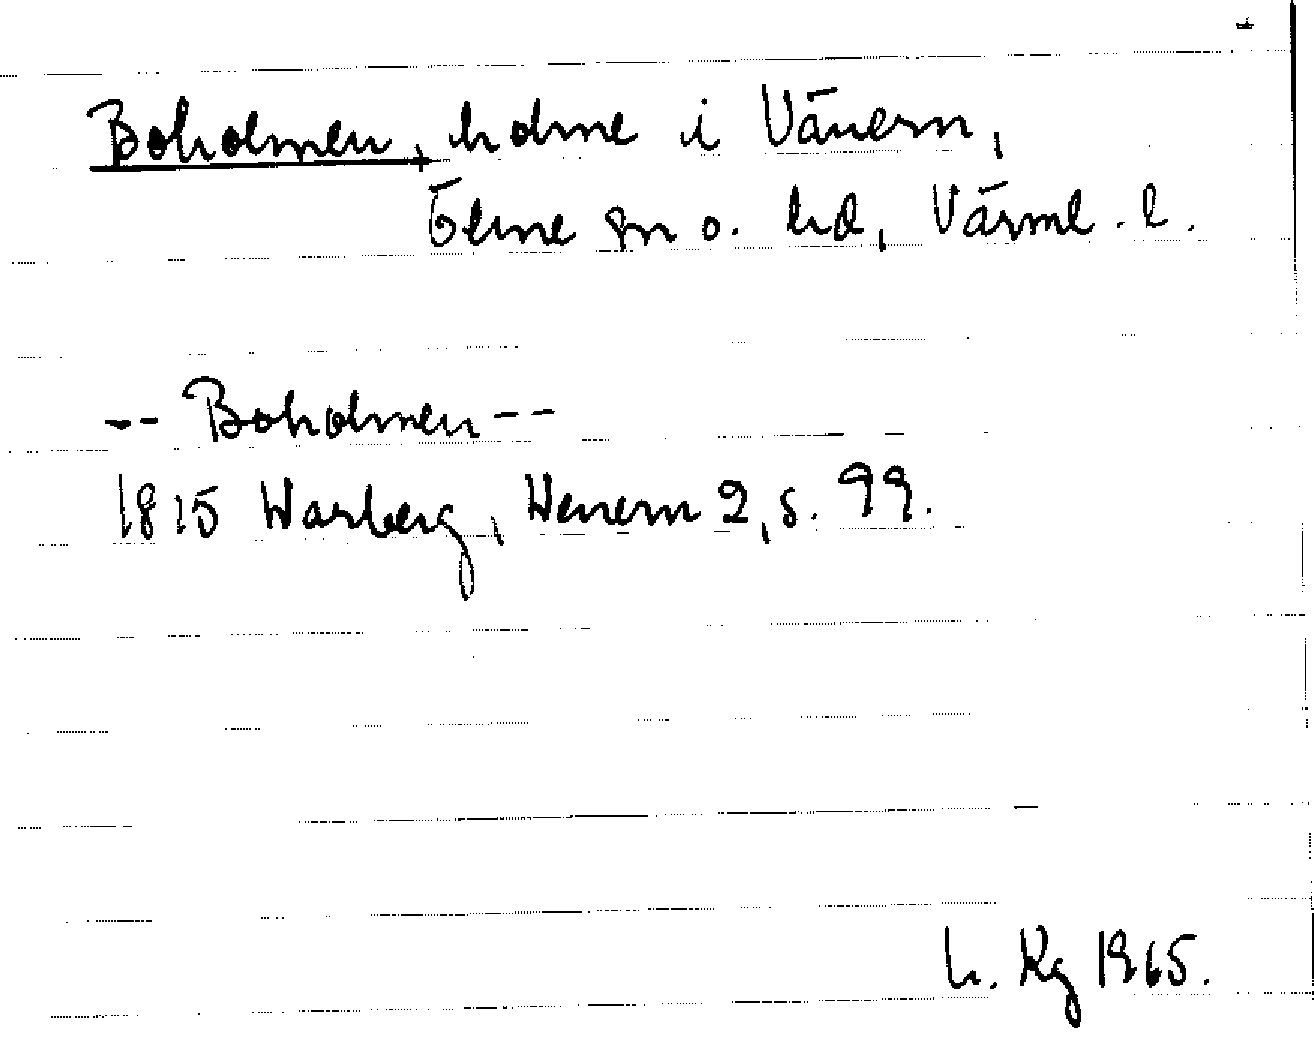 Boholmen, holme i Vänern,
Ölme sn o. hd, Värml. l.
-- Boholmen --
1815 Warberg, Wenern 2, s. 99.
h. Kg 1965.